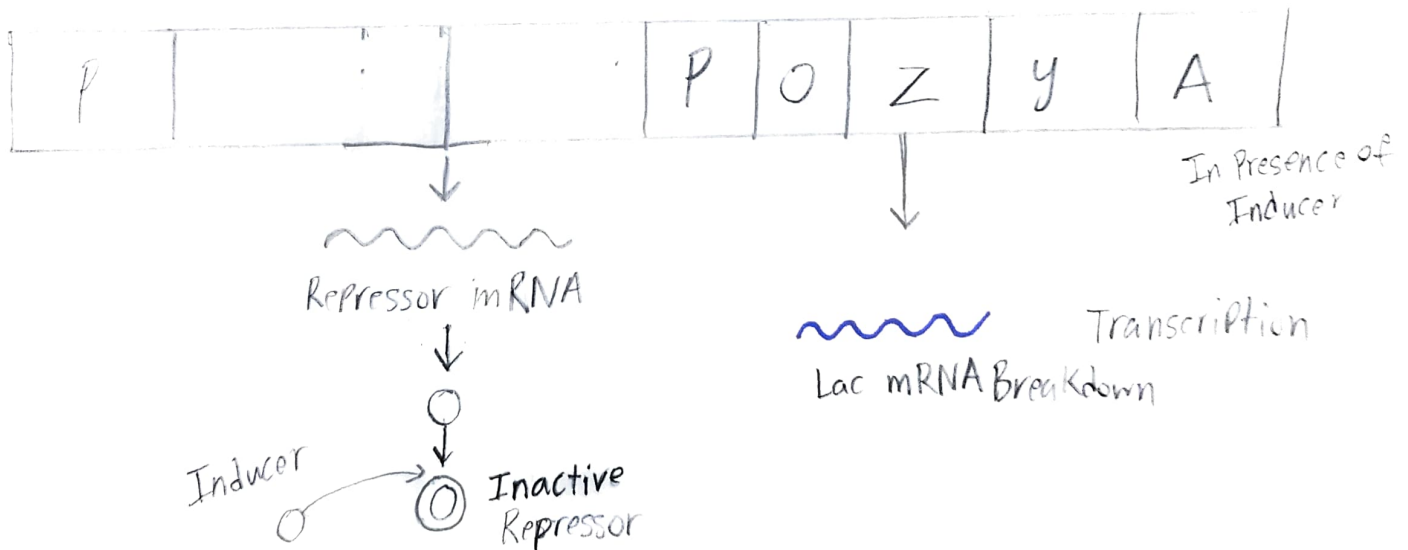 P P O Z y A
In Presence of
Inducer
Repressor mRNA
Transcription
Lac mRNA Breakdown
Inducer
Inactive
Repressor